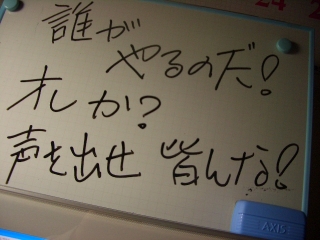 誰が
やるのだ!
オレか?
声を出せ 皆んな!
AXIS
24